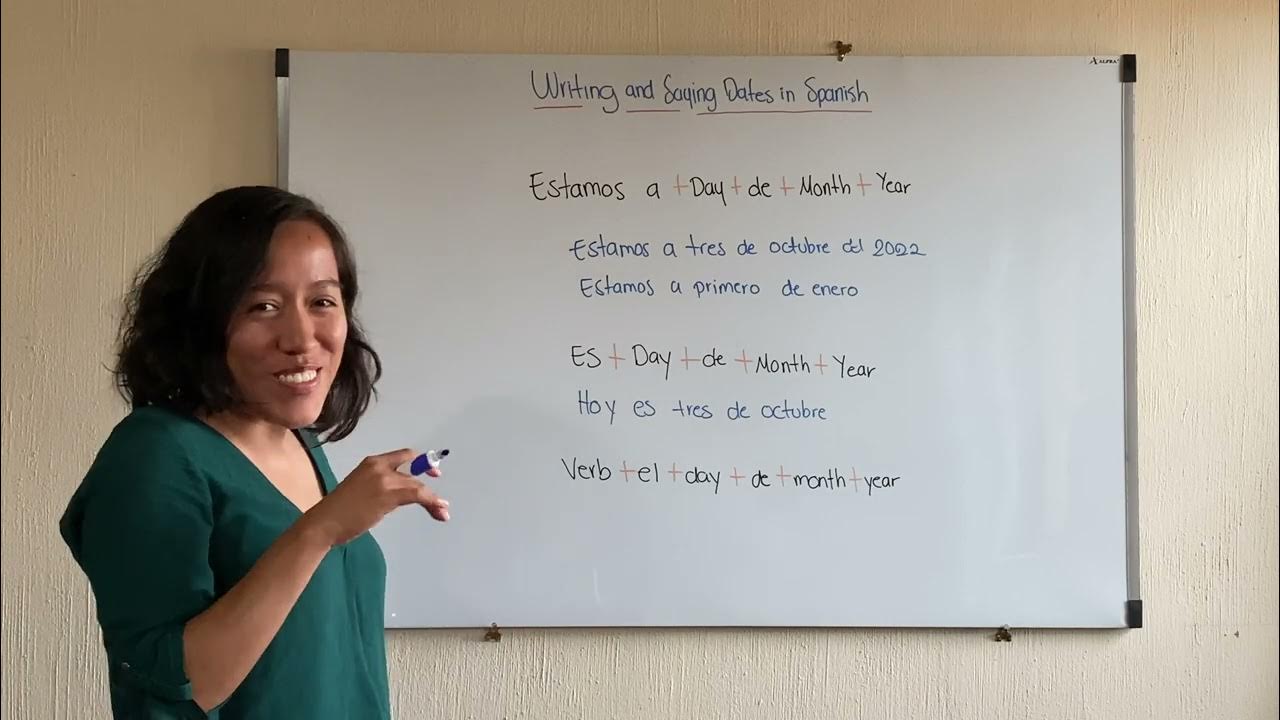 ALFRA
Writing and Saying Dates in Spanish
Estamos a + Day + de + Month + Year
Estamos a tres de octubre del 2022
Estamos a primero de enero
Es + Day + de + Month + Year
Hoy es tres de octubre
Verb + el + day + de + month + year